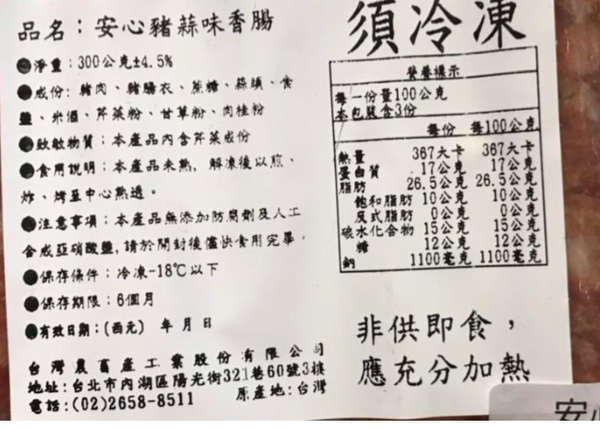 品名：安心豬蒜味香腸
●淨重：300公克±4.5%
●成份: 豬肉、豬腸衣、蔗糖、蒜頭、食
鹽、米酒、芹菜粉、甘草粉、肉桂粉
●致敏物質：本產品內含芹菜成份
●食用說明：本產品未熟, 解凍後以煎、
炸、烤至中心熟透。
●注意事項：本產品無添加防腐劑及人工
合成亞硝酸鹽,請於開封後儘快食用完畢.
●保存條件：冷凍-18℃以下
●保存期限：6個月
●有效日期：(西元) 年 月 日
台灣農畜產工業股份有限公司
地址:台北市內湖區陽光街321巷60號3樓
電話:(02)2658-8511 原產地:台灣
須冷凍
營養標示
每一份量100公克
本包裝含3份
每份 每100公克
熱量 367大卡 367大卡
蛋白質 17公克 17公克
脂肪 26.5公克 26.5公克
飽和脂肪 10公克 10公克
反式脂肪 0公克 0公克
碳水化合物 15公克 15公克
糖 12公克 12公克
鈉 1100毫克 1100毫克
非供即食，
應充分加熱
安